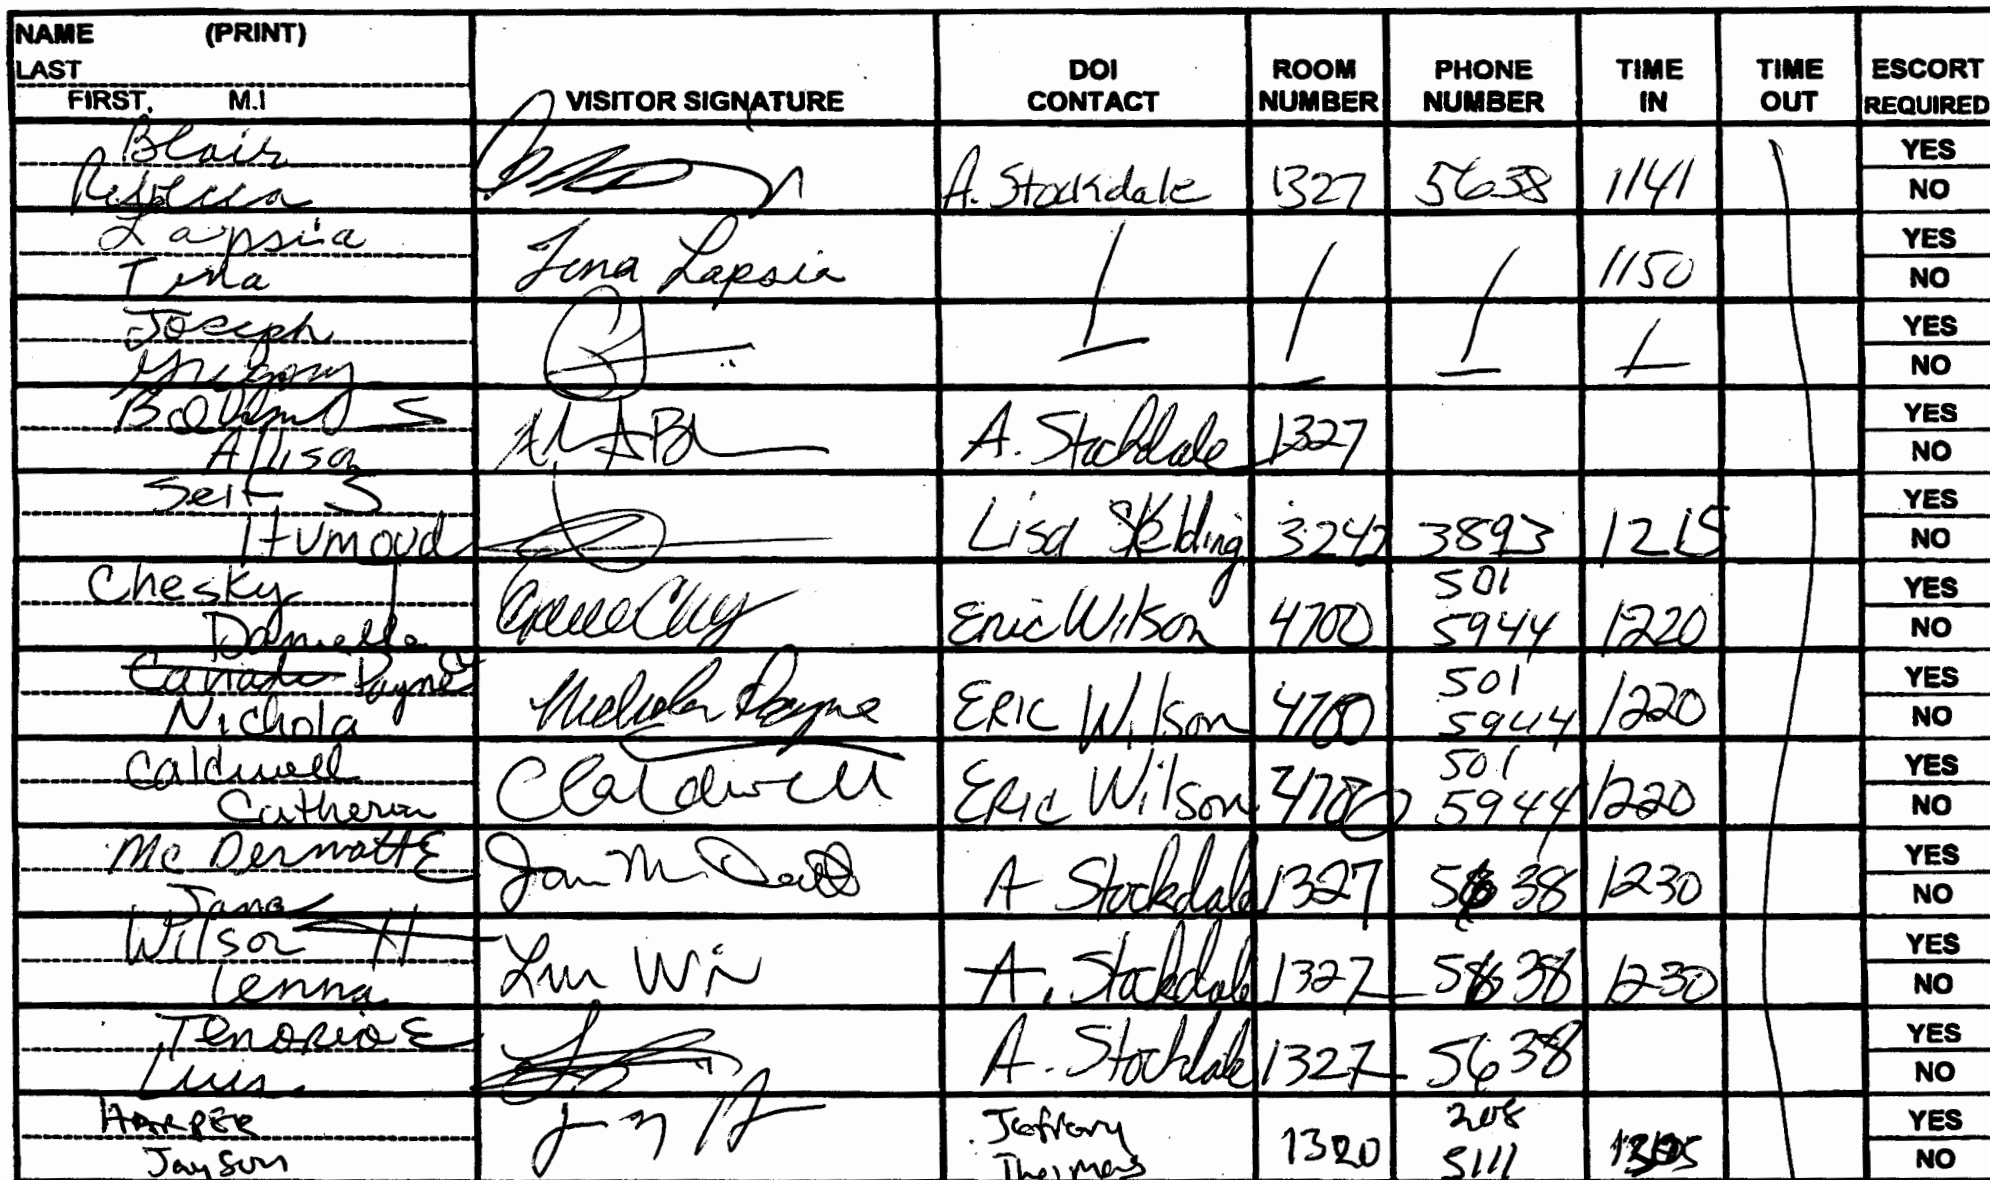 NAME (PRINT)
LAST
FIRST, M.I
VISITOR SIGNATURE
DOI CONTACT
ROOM NUMBER
PHONE NUMBER
TIME IN
TIME OUT
ESCORT REQUIRED
Blair
Rebecca
A. Stockdale 1327 5638 1141 YES NO
Lapsia
Tina
Tina Lapsia 1150 YES NO
Joseph
Gregory
YES NO
S
Allison
A. Stockdale 1327 YES NO
Seit S
Humoud
Lisa Skelding 3242 3893 1215 YES NO
Chesky
Danielle
Eric Wilson 4700 501 5944 1220 YES NO
Payne
Nichola
Nichola Payne ERIC Wilson 4700 501 5944 1220 YES NO
Caldwell
CCaldwell ERIC Wilson 4700 501 5944 1220 YES NO
McDermott E
Jane
A Stockdale 1327 5638 1230 YES NO
Wilson H
Lenna
A. Stockdale 1327 5638 1230 YES NO
Tenorio E
Luis
A. Stockdale 1327 5638 YES NO
HARPER
Jayson
1320 208 5111 YES NO